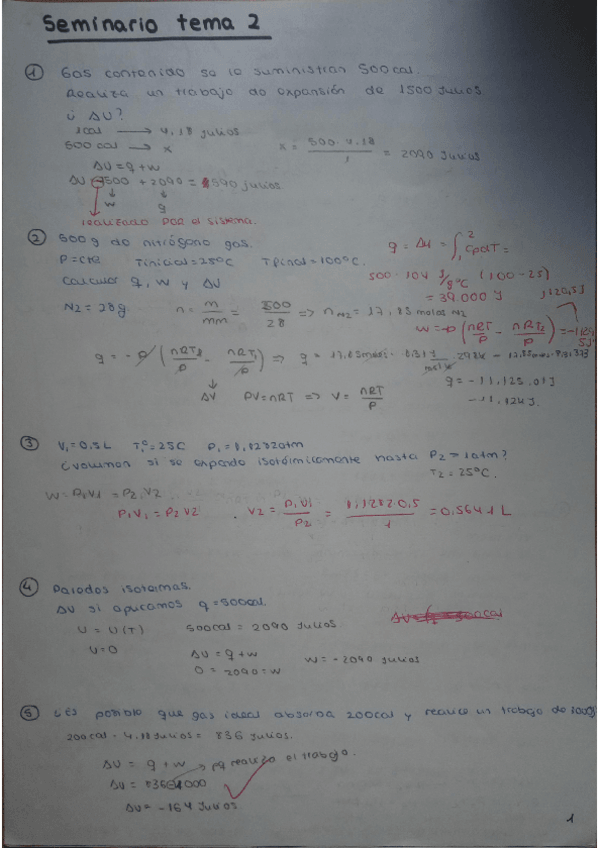 Seminario tema 2
① Gas contenido se le suministran 500cal.
Realiza un trabajo de expansión de 1500 Julios
¿ΔU?
1cal → 4,18 Julios
500cal → x x = 500·4,18 / 1 = 2090 Julios
ΔU = q+w
ΔU = -1500 + 2090 = 590 Julios
w q
realizado por el sistema.
② 500g de nitrógeno gas.
P=cte Tinicial=25ºC Tfinal=100ºC.
Calcular q, W y ΔU
q = ΔH = ∫₁² CpdT =
500·1,04 J/gºC (100-25)
= 39.000 J
N2 = 28g n = m/mm = 500/28 => n N2 = 17,85 moles N2
W = -P (nRT/P - nRT/P) =
q = -P (nRT2/P - nRT1/P) => q = 17,85moles · 8,31J/molK · 298K -
ΔV PV=nRT => V = nRT/P
q = -11,125.01J
-11,12KJ.
③ V1=0,5L T1º=25C P1=1,1282atm
¿volumen si se expande isotérmicamente hasta P2=1atm?
T2=25ºC.
W = P1V1 = P2.V2
P1V1 = P2V2 . V2 = P1V1/P2 = 1,1282·0,5 / 1 = 0,5641 L
④ Paredes isotermas.
ΔU si aplicamos q=500cal.
U = U(T) 500cal = 2090 Julios
U=0
ΔU = q+w W = -2090 Julios
0 = 2090+w
⑤ ¿Es posible que gas ideal absorba 200cal y realice un trabajo de
200cal · 4,18 Julios = 836 Julios.
ΔU = q+w → pq realiza el trabajo.
ΔU = 836-1000
ΔU = -164 Julios
1